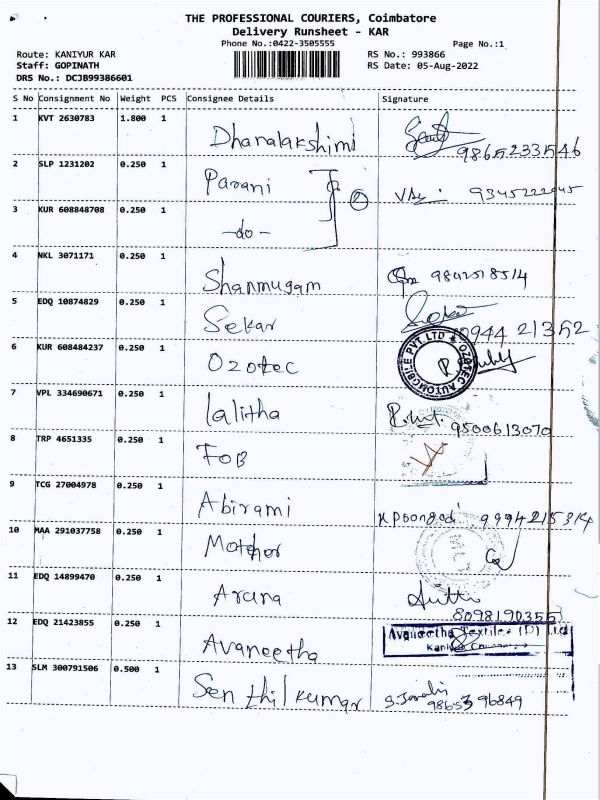 THE PROFESSIONAL COURIERS, Coimbatore
Delivery Runsheet - KAR
Phone No.:0422-3505555
Page No.:1
Route: KANIYUR KAR
RS No.: 993866
Staff: GOPINATH
RS Date: 05-Aug-2022
DRS No.: DCJB99386601
S No Consignment No Weight PCS Consignee Details Signature
1 KVT 2630783 1.800 1 Dhanalakshimi 9865233546
2 SLP 1231202 0.250 1 Parani 2
3 KUR 608848708 0.250 1 -do-
4 NKL 3071171 0.250 1 Shanmugam 9842518514
5 EDQ 10874829 0.250 1 Sekar 0944 21352
6 KUR 608484237 0.250 1 Ozotec OZOTEC AUTOMOBILE PVT LTD
7 VPL 334690671 0.250 1 lalitha 9500613070
8 TRP 4651335 0.250 1 FOB
9 TCG 27004978 0.250 1 Abirami 9994215314
10 MAA 291037758 0.250 1 Mother
11 EDQ 14899470 0.250 1 Aruna 8098190355
12 EDQ 21423855 0.250 1 Avaneetha Avaneetha Textiles (P) Ltd
13 SLM 300791506 0.500 1 Senthilkumar 98653 96849